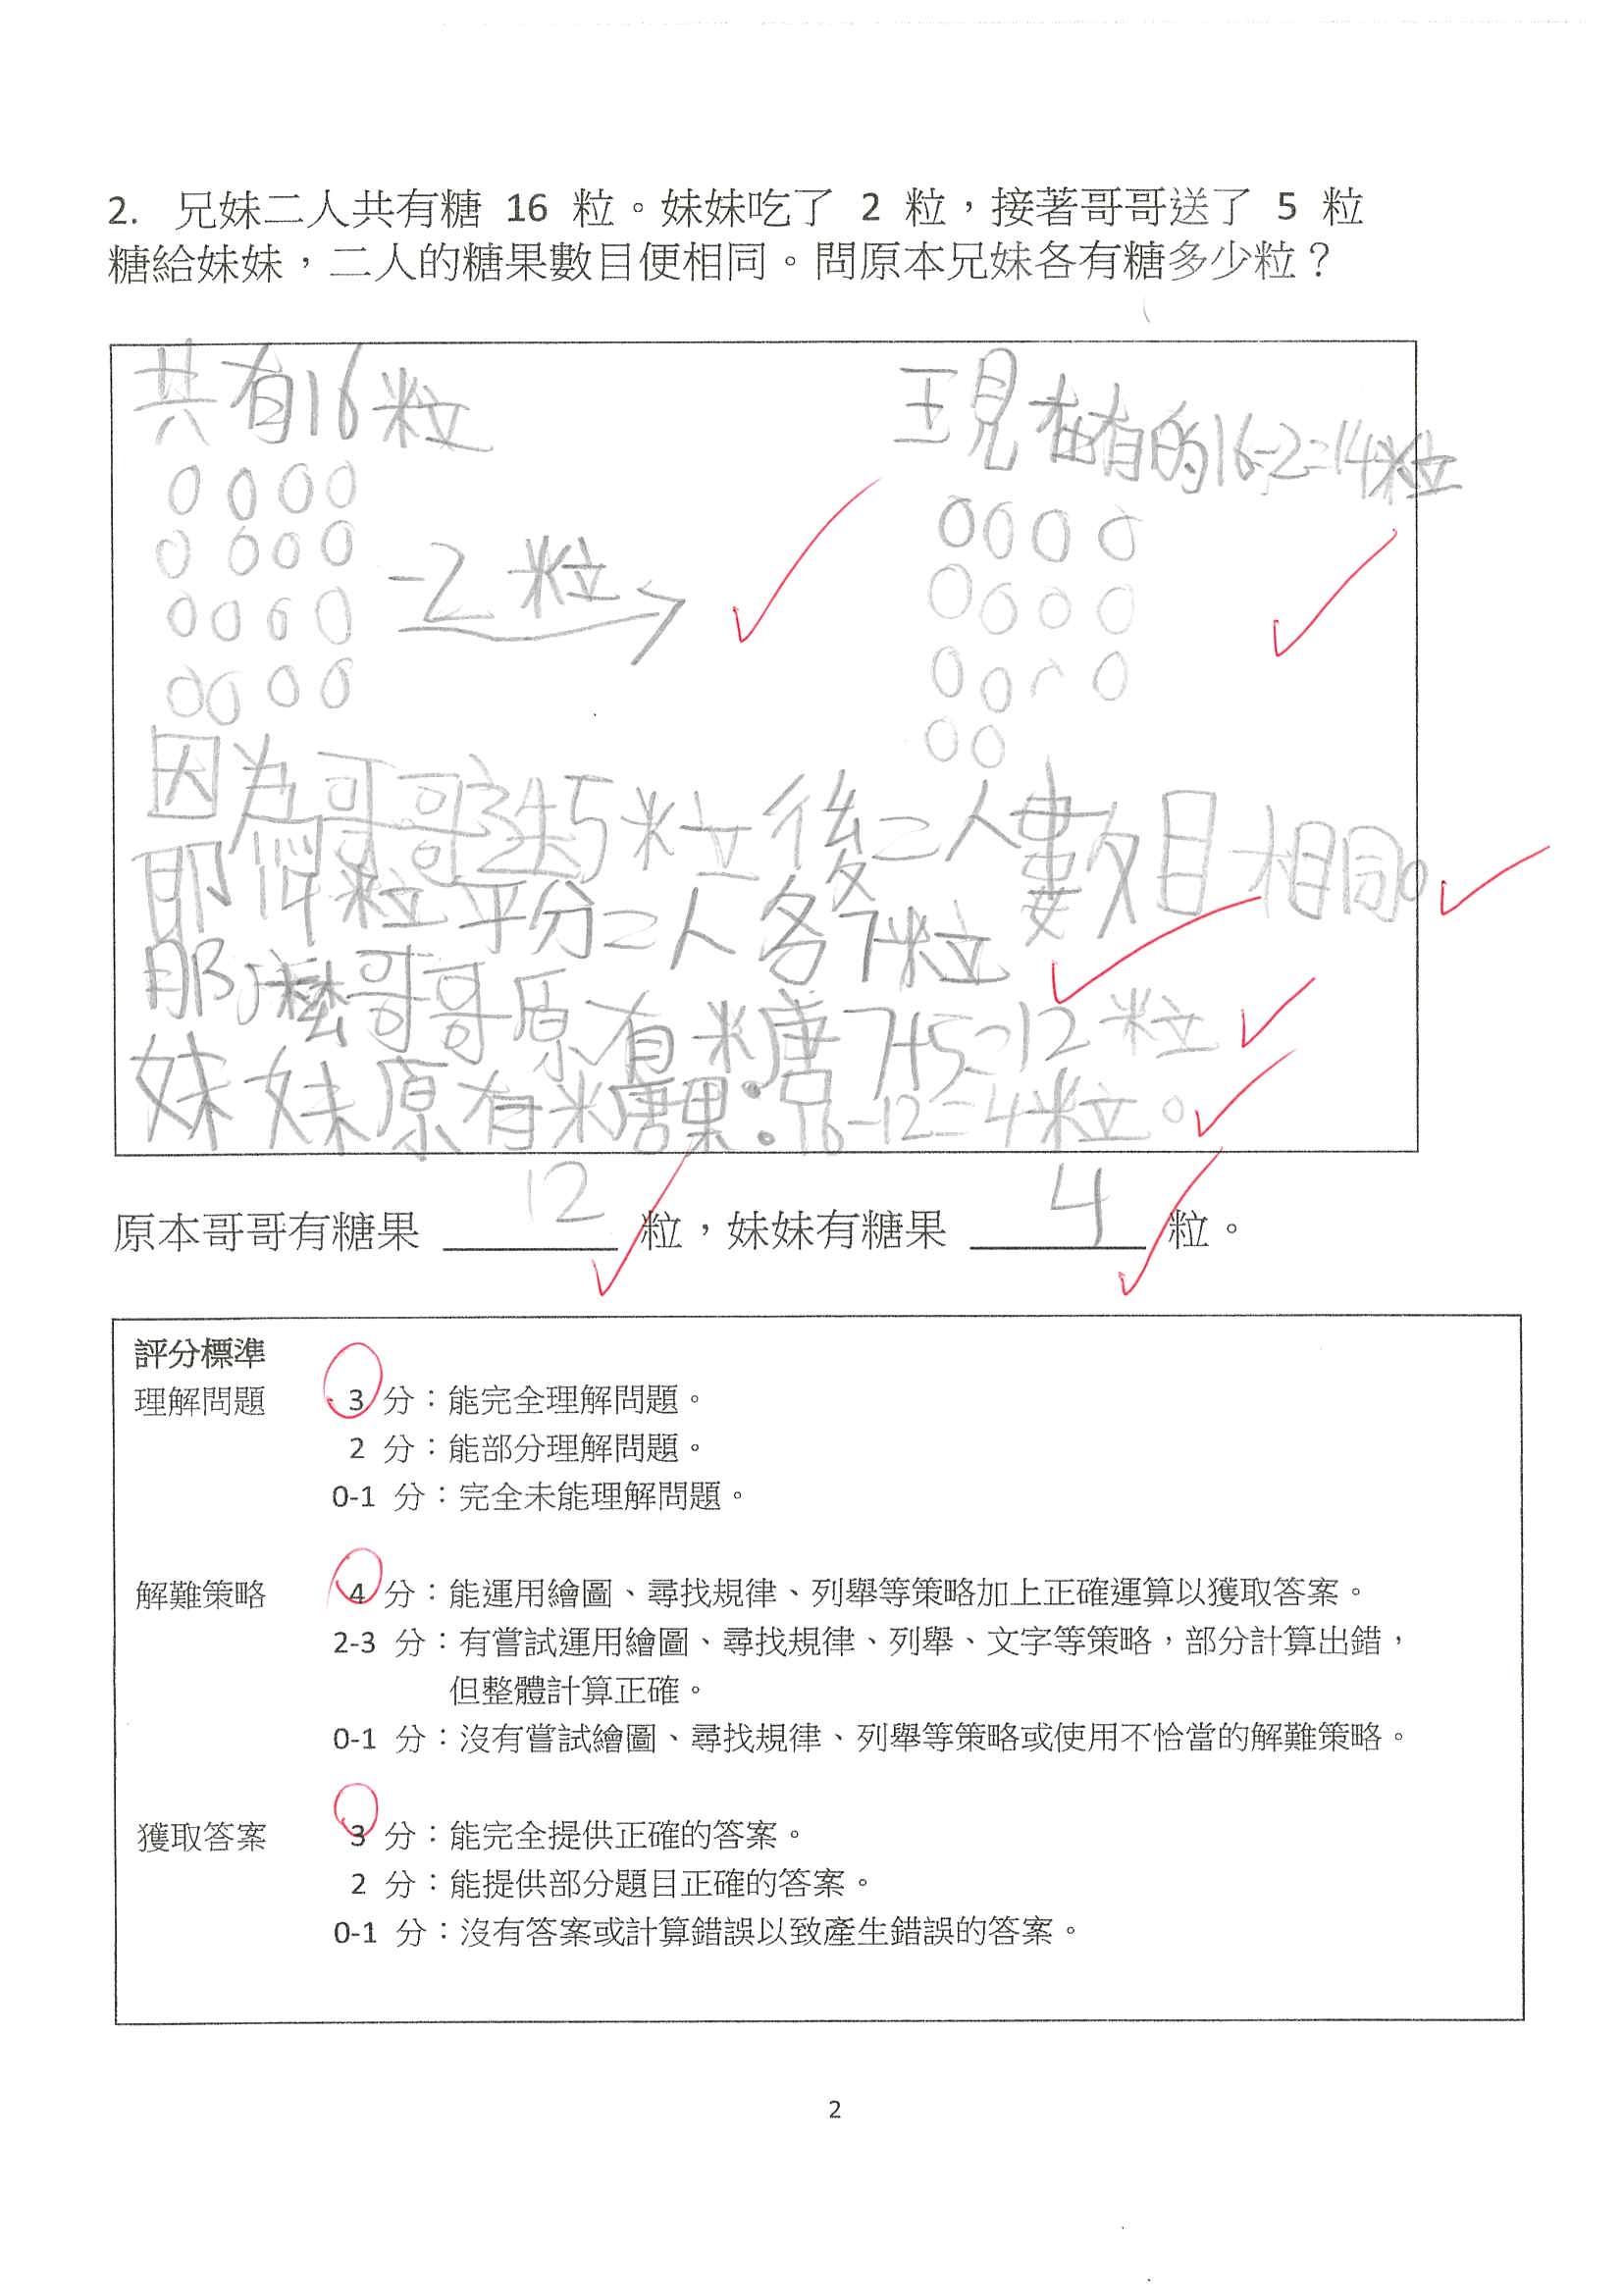 2. 兄妹二人共有糖 16 粒。妹妹吃了 2 粒，接著哥哥送了 5 粒
糖給妹妹，二人的糖果數目便相同。問原本兄妹各有糖多少粒？
共有16粒
現在有的16-2=14粒
-2粒
因為哥哥送5粒後二人數目相同。
即14粒平分二人各7粒
那麼哥哥原有糖7+5=12粒
妹妹原有糖果：16-12=4粒。
原本哥哥有糖果 12 粒，妹妹有糖果 4 粒。
評分標準
理解問題 3 分：能完全理解問題。
2 分：能部分理解問題。
0-1 分：完全未能理解問題。
解難策略 4 分：能運用繪圖、尋找規律、列舉等策略加上正確運算以獲取答案。
2-3 分：有嘗試運用繪圖、尋找規律、列舉、文字等策略，部分計算出錯，
但整體計算正確。
0-1 分：沒有嘗試繪圖、尋找規律、列舉等策略或使用不恰當的解難策略。
獲取答案 3 分：能完全提供正確的答案。
2 分：能提供部分題目正確的答案。
0-1 分：沒有答案或計算錯誤以致產生錯誤的答案。
2